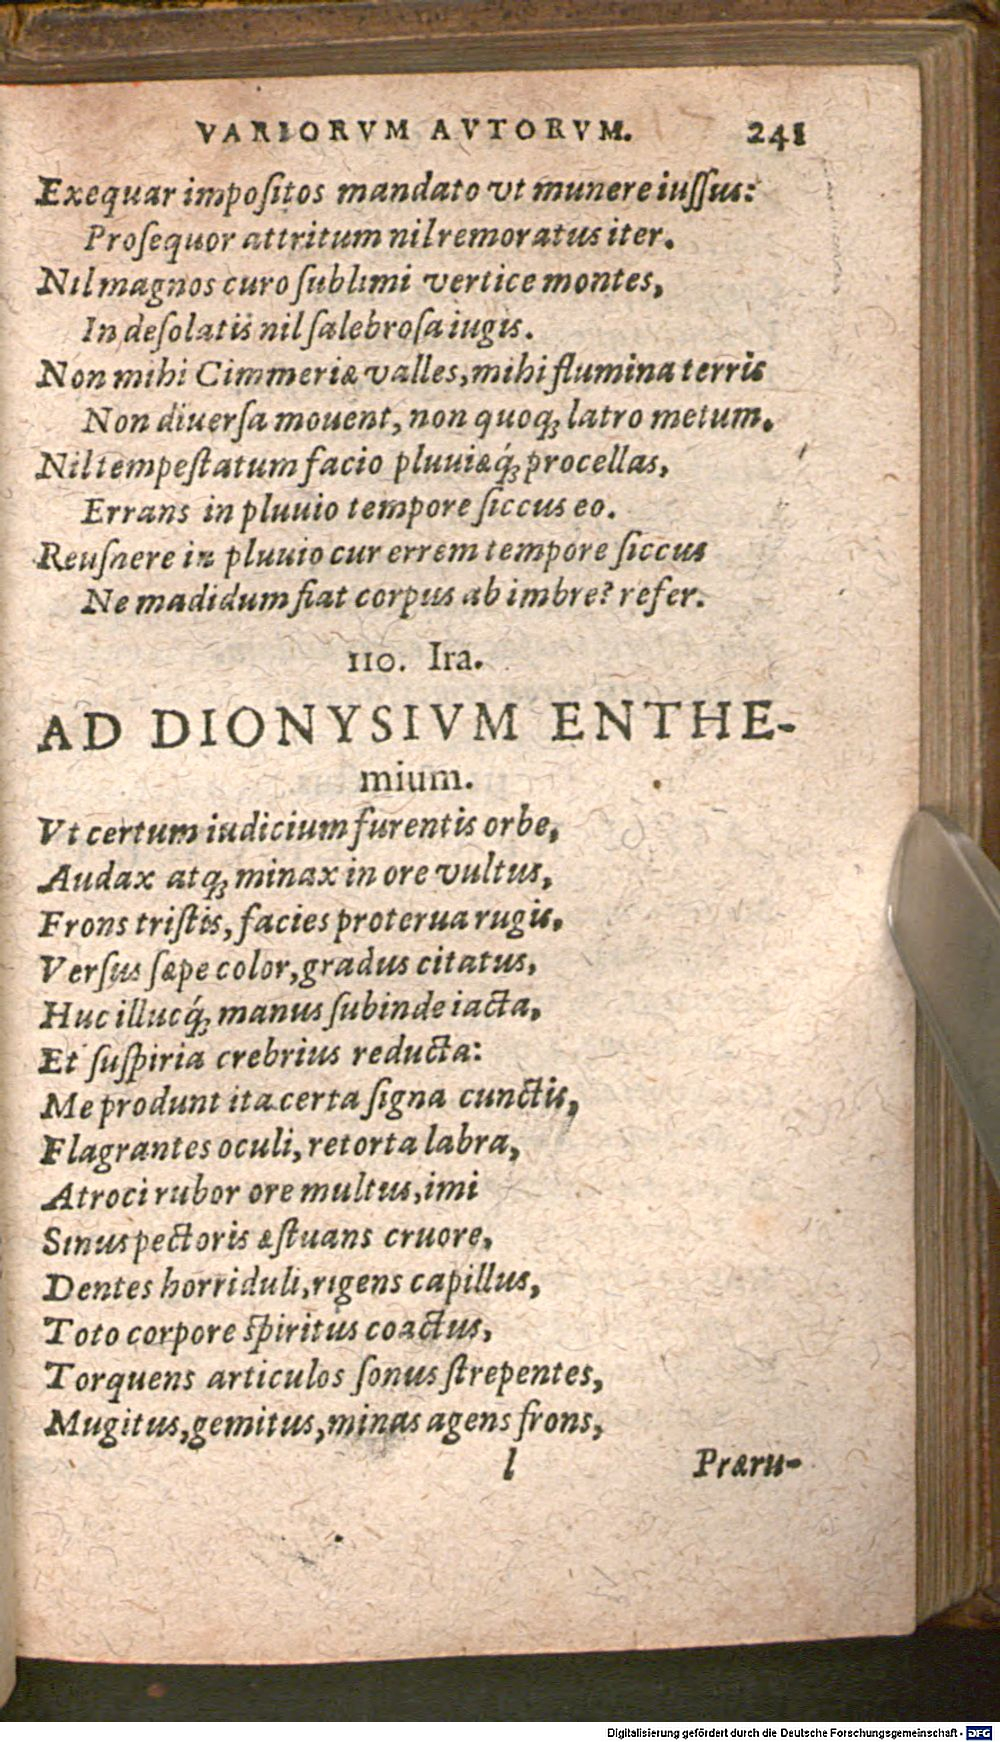 VARIORVM AVTORVM. 241
Exequar impoſitos mandato vt munere iuſſus:
Proſequor attritum nil remoratus iter.
Nil magnos curo ſublimi vertice montes,
In deſolatis nil ſalebroſa iugis.
Non mihi Cimmeriæ valles, mihi flumina terris
Non diuerſa mouent, non quoq; latro metum.
Nil tempeſtatum facio pluuiæq́; procellas,
Errans in pluuio tempore ſiccus eo.
Reuſnere in pluuio cur errem tempore ſiccus
Ne madidum fiat corpus ab imbre? refer.
110. Ira.
AD DIONYSIVM ENTHE-
mium.
Vt certum iudicium furentis orbe,
Audax atq; minax in ore vultus,
Frons triſtis, facies proterua rugis,
Verſus ſæpe color, gradus citatus,
Huc illucq́; manus ſubinde iacta,
Et ſuſpiria crebrius reducta:
Me produnt ita certa ſigna cunctis,
Flagrantes oculi, retorta labra,
Atroci rubor ore multus, imi
Sinus pectoris æſtuans cruore,
Dentes horriduli, rigens capillus,
Toto corpore ſpiritus coactus,
Torquens articulos ſonus ſtrepentes,
Mugitus, gemitus, minas agens frons,
l Præru-
Digitalisierung gefördert durch die Deutsche Forschungsgemeinschaft - DFG